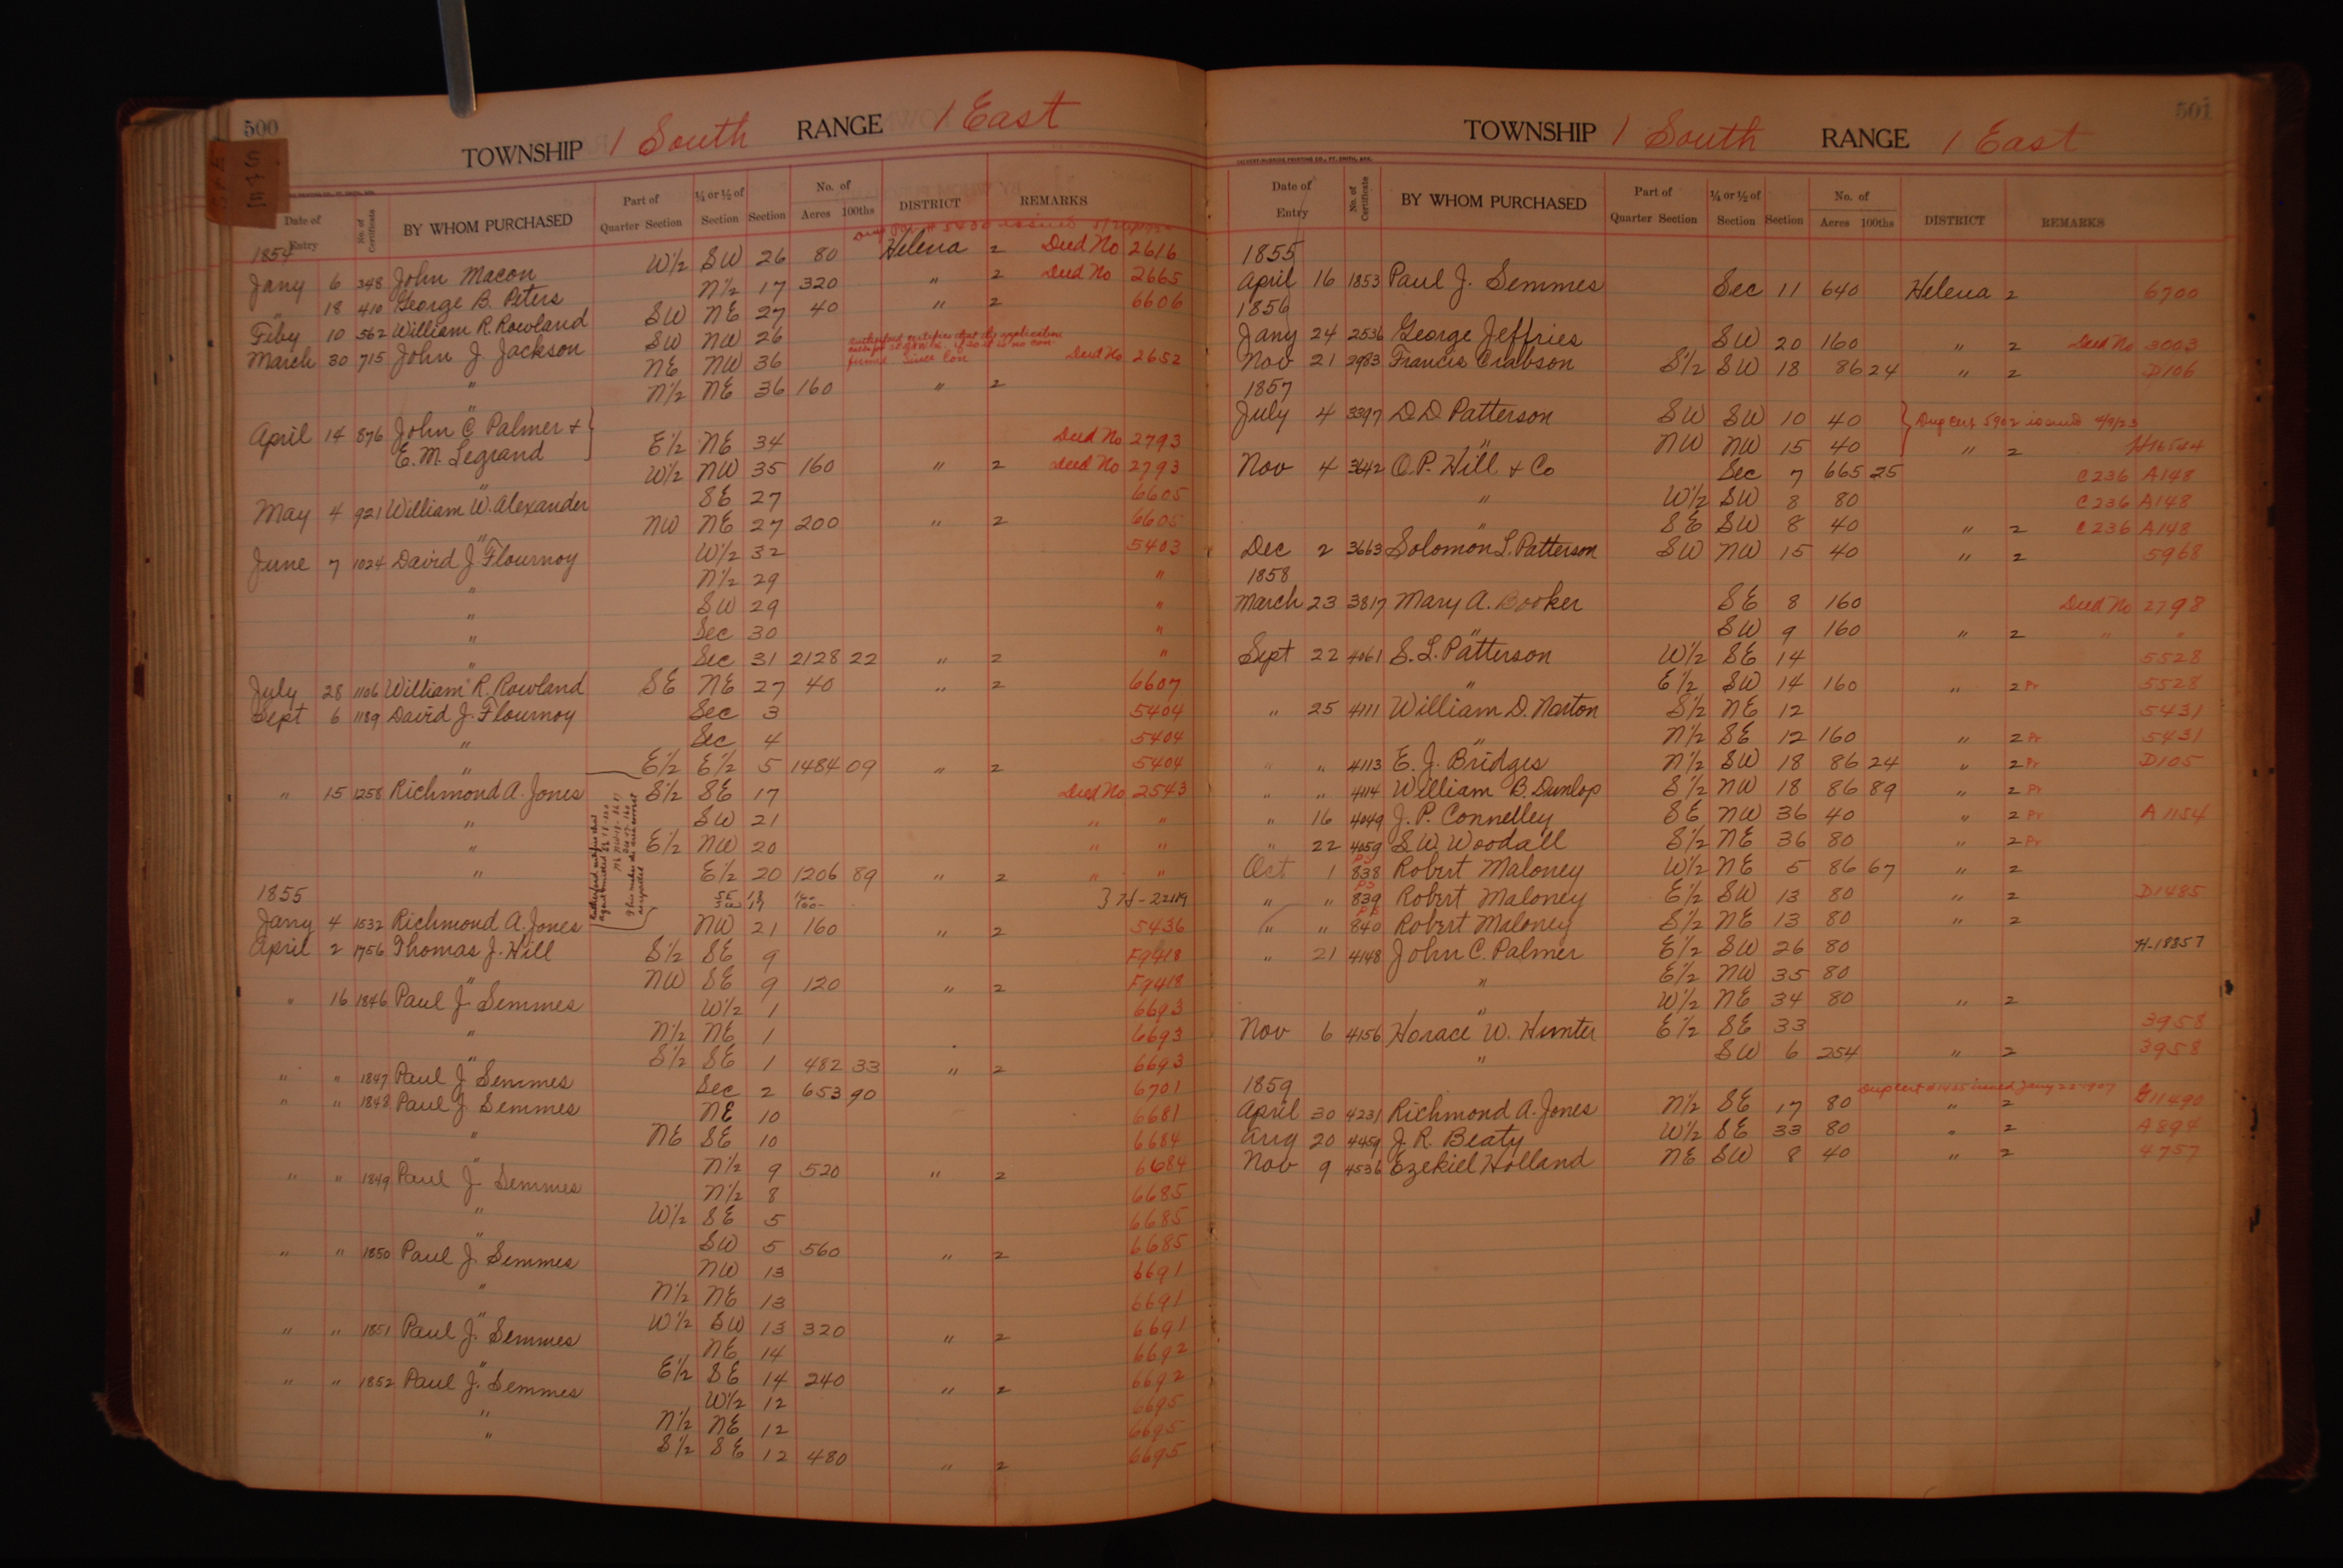 500
TOWNSHIP 1 South RANGE 1 East
Date of Entry No. of Certificate BY WHOM PURCHASED Part of Quarter Section ¼ or ½ of Section Section No. of Acres 100ths DISTRICT REMARKS
1854
Jany 6 348 John Macon W½ SW 26 80 Helena 2 Deed No 2616
" 18 410 George B. Peters N½ 17 320 " 2 Deed No 2665
Feby 10 562 William R. Rowland SW NE 27 40 " 2 6606
March 30 715 John J. Jackson SW NW 26
" NE NW 36 Deed No 2652
" N½ NE 36 160 " 2
April 14 876 John C Palmer +
E. M. Legrand } E½ NE 34 Deed No 2793
" W½ NW 35 160 " 2 Deed No 2793
May 4 921 William W. Alexander SE 27 6605
" NW NE 27 200 " 2 6605
June 7 1024 David J Flournoy W½ 32 5403
" N½ 29 "
" SW 29 "
" Sec 30 "
" Sec 31 2128 22 " 2 "
July 28 1106 William R. Rowland SE NE 27 40 " 2 6607
Sept 6 1189 David J. Flournoy Sec 3 5404
" Sec 4 5404
" E½ E½ 5 1484 09 " 2 5404
" 15 1258 Richmond A. Jones S½ SE 17 Deed No 2543
" SW 21 " "
" E½ NW 20 " "
" E½ 20 1206 89 " 2 " "
1855
Jany 4 1532 Richmond A. Jones NW 21 160 " 2 5436
April 2 1756 Thomas J. Hill S½ SE 9 F9418
" NW SE 9 120 " 2 F9418
" 16 1846 Paul J. Semmes W½ 1 6693
" N½ NE 1 6693
" S½ SE 1 482 33 " 2 6693
" " 1847 Paul J Semmes Sec 2 653 90 6701
" " 1848 Paul J. Semmes NE 10 6681
" NE SE 10 6684
" N½ 9 520 " 2 6684
" " 1849 Paul J Semmes N½ 8 6685
" W½ SE 5 6685
" SW 5 560 " 2 6685
" " 1850 Paul J. Semmes NW 13 6691
" N½ NE 13 6691
" W½ SW 13 320 " 2 6691
" " 1851 Paul J. Semmes NE 14 6692
" E½ SE 14 240 " 2 6692
" " 1852 Paul J. Semmes W½ 12 6695
" N½ NE 12 6695
" S½ SE 12 480 " 2 6695
501
TOWNSHIP 1 South RANGE 1 East
Date of Entry No. of Certificate BY WHOM PURCHASED Part of Quarter Section ¼ or ½ of Section Section No. of Acres 100ths DISTRICT REMARKS
1855
April 16 1853 Paul J. Semmes Sec 11 640 Helena 2 6700
1856
Jany 24 2536 George Jeffries SW 20 160 " 2 Deed No 3063
Nov 21 2983 Francis Crabson S½ SW 18 86 24 " 2 D106
1857
July 4 3397 D. D. Patterson SW SW 10 40 } Dup Cert 5902 issued 4/9/23
" NW NW 15 40 " 2 H16544
Nov 4 3642 O. P. Hill + Co Sec 7 665 25 C236 A148
" W½ SW 8 80 C236 A148
" SE SW 8 40 " 2 C236 A148
Dec 2 3663 Solomon L. Patterson SW NW 15 40 " 2 5968
1858
March 23 3817 Mary A. Booker SE 8 160 Deed No 2798
" SW 9 160 " 2 " "
Sept 22 4061 S. L. Patterson W½ SE 14 5528
" E½ SW 14 160 " 2 Pr 5528
" 25 4111 William D. Narton S½ NE 12 5431
" N½ SE 12 160 " 2 Pr 5431
" " 4113 E. J. Bridges N½ SW 18 86 24 " 2 Pr D105
" " 4114 William B. Dunlop S½ NW 18 86 89 " 2 Pr
" 16 4049 J. P. Connelley SE NW 36 40 " 2 Pr A1154
" 22 4059 S. W. Woodall S½ NE 36 80 " 2 Pr
Oct 1 PS 838 Robert Maloney W½ NE 5 86 67 " 2
" " PS 839 Robert Maloney E½ SW 13 80 " 2 D1485
" " PS 840 Robert Maloney S½ NE 13 80 " 2
" 21 4148 John C. Palmer E½ SW 26 80 H-18857
" E½ NW 35 80
" W½ NE 34 80 " 2
Nov 6 4156 Horace W. Hunter E½ SE 33 3958
" SW 6 254 " 2 3958
1859
April 30 4231 Richmond A. Jones N½ SE 17 80 " 2 G11490
Aug 20 4459 J. R. Beaty W½ SE 33 80 " 2 A894
Nov 9 4536 Ezekiel Holland NE SW 8 40 " 2 4757